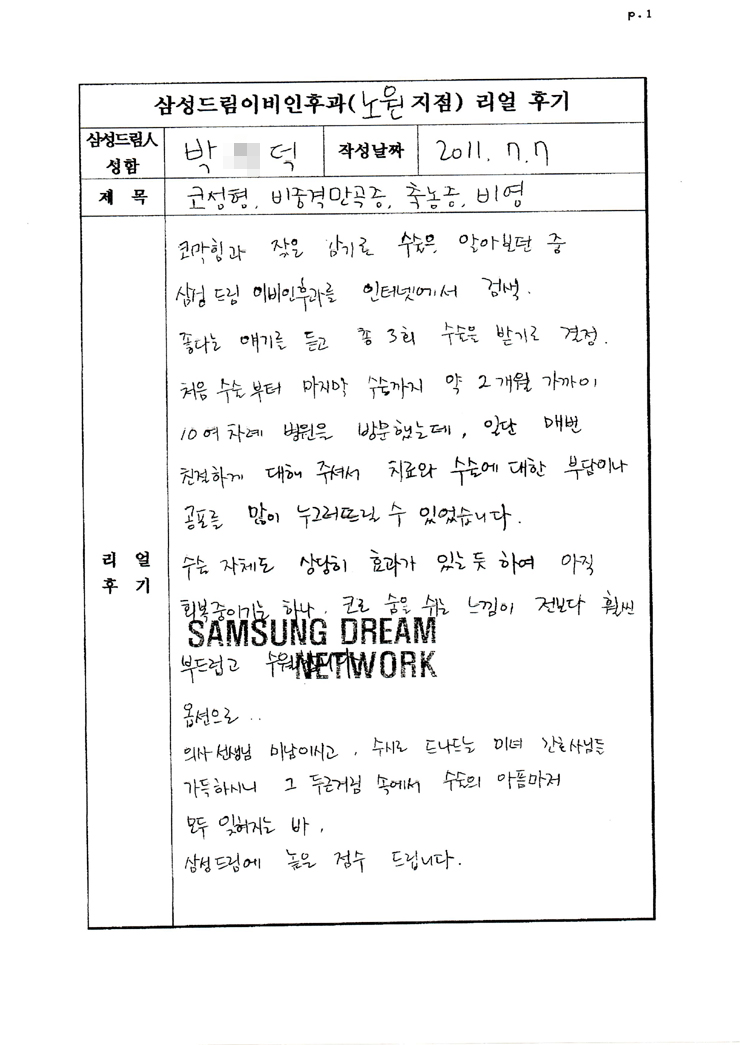 p.1
삼성드림이비인후과(노원지점) 리얼 후기
삼성드림人 성함
박 덕
작성날짜
2011. 7. 7
제 목
코성형, 비중격만곡증, 축농증, 비염
리 얼 후 기
코막힘과 잦은 감기로 수술을 알아보던 중
삼성 드림 이비인후과를 인터넷에서 검색.
좋다는 얘기를 듣고 총 3회 수술을 받기로 결정.
처음 수술부터 마지막 수술까지 약 2개월 가까이
10여 차례 병원을 방문했는데, 일단 매번
친절하게 대해 주셔서 치료와 수술에 대한 부담이나
공포를 많이 누그러뜨릴 수 있었습니다.
수술 자체도 상당히 효과가 있는 듯 하여 아직
회복중이기는 하나, 코로 숨을 쉬는 느낌이 전보다 훨씬
부드럽고
SAMSUNG DREAM
NETWORK
옵션으로..
의사선생님 미남이시고, 수시로 드나드는 미녀 간호사님들
가득하시니 그 두근거림 속에서 수술의 아픔마저
모두 잊혀지는 바,
삼성드림에 높은 점수 드립니다.